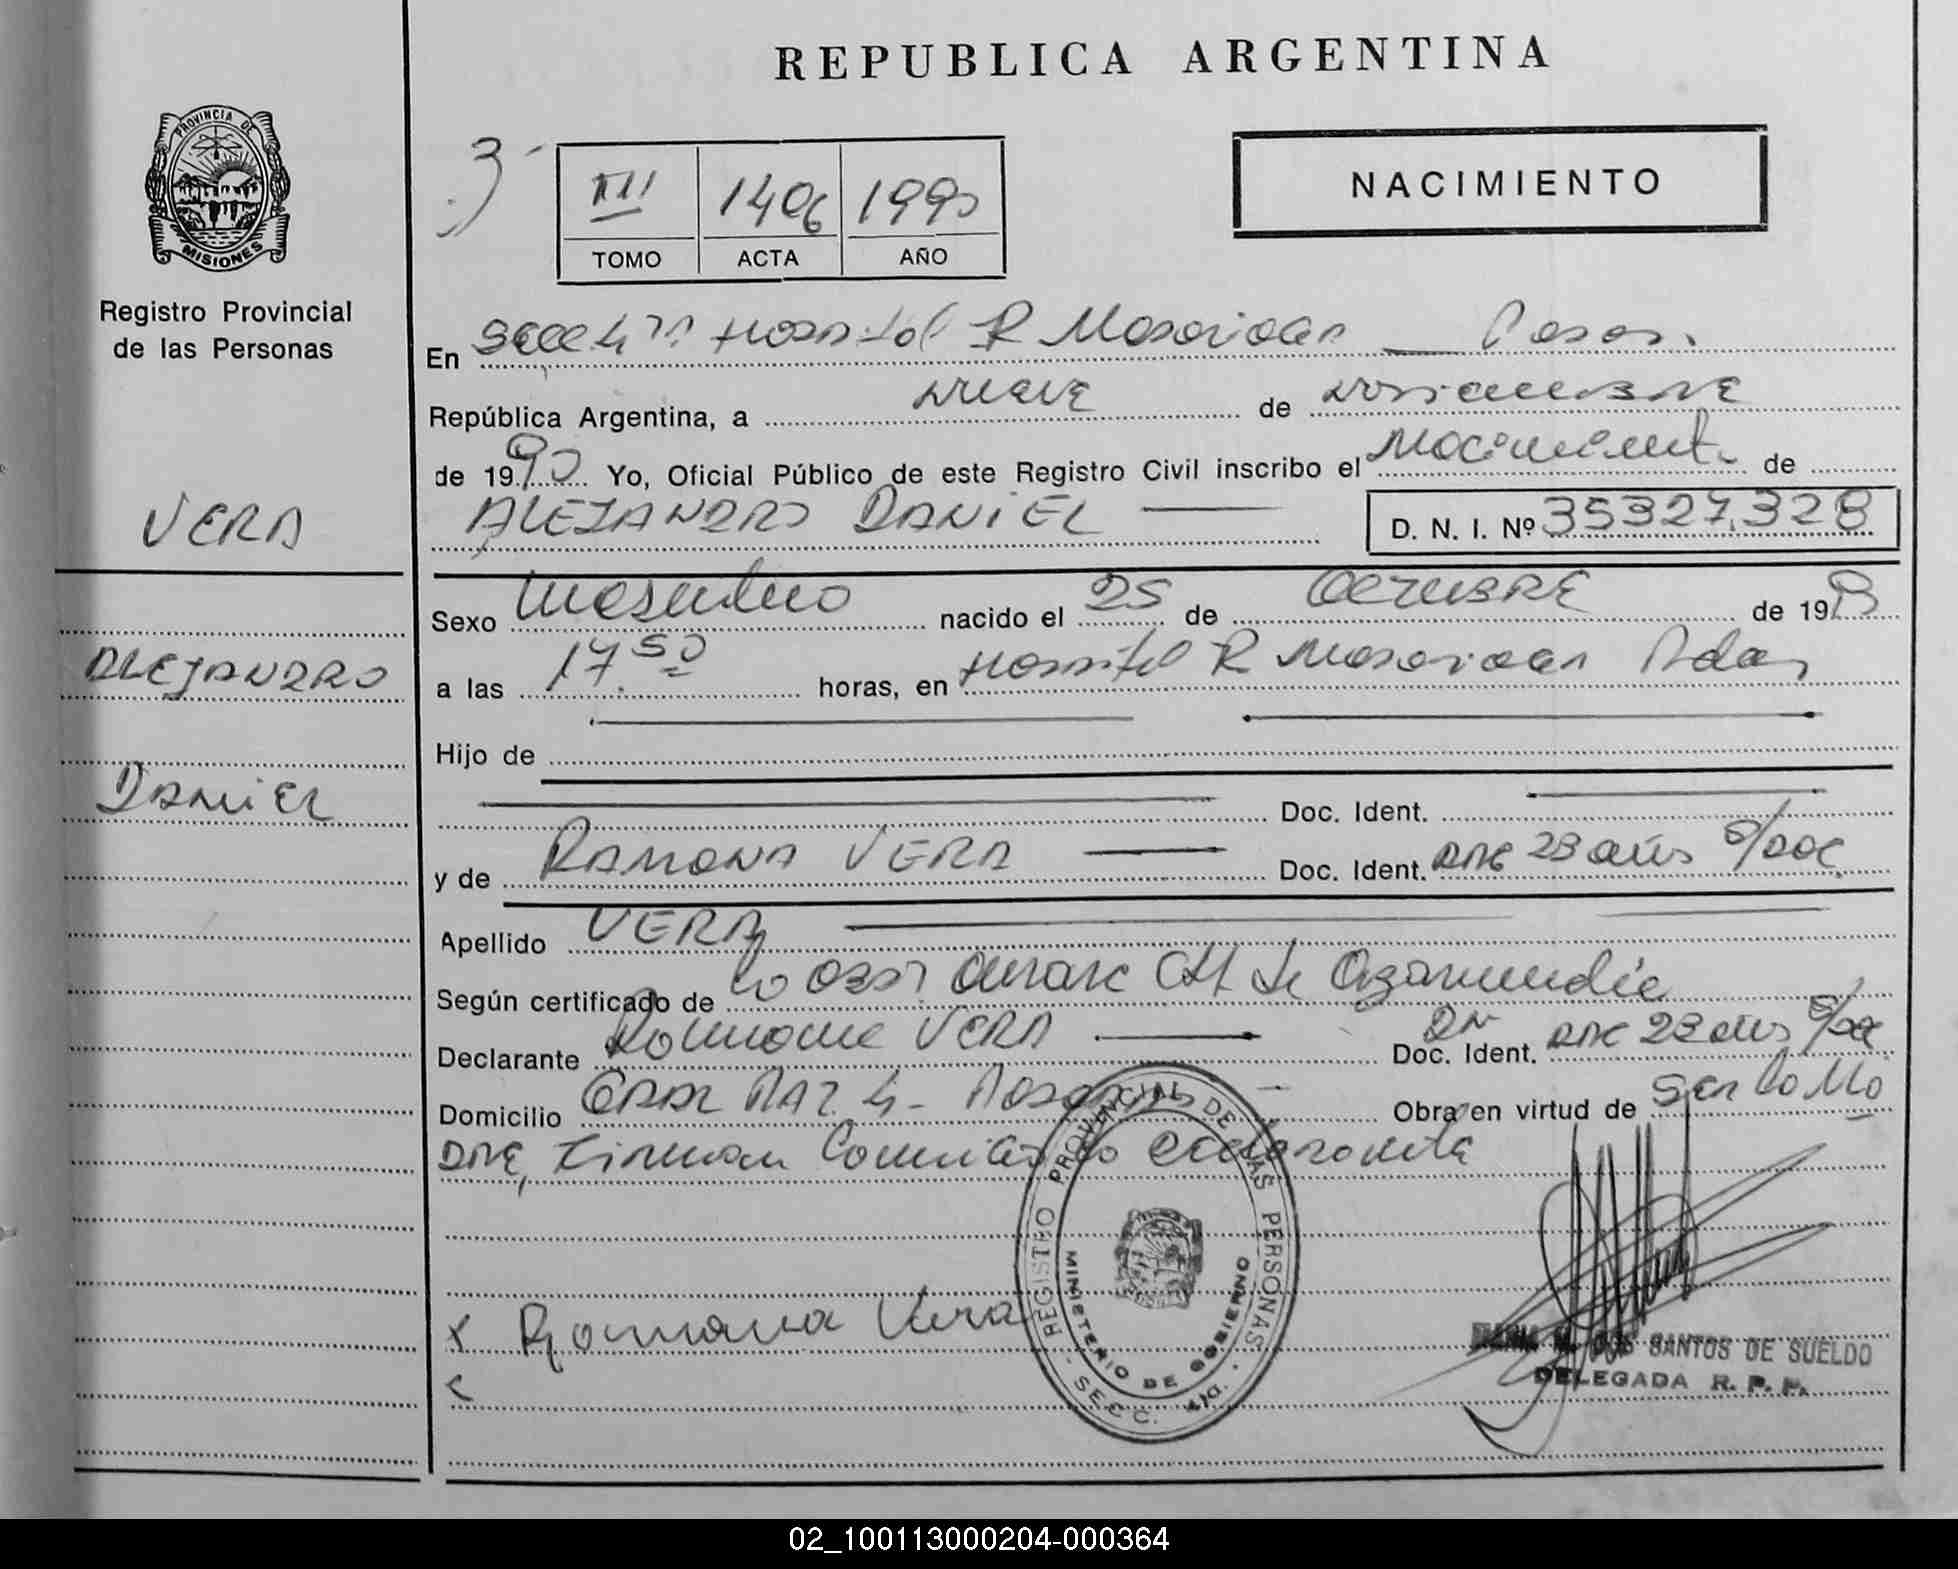 REPUBLICA ARGENTINA
PROVINCIA DE
MISIONES
Registro Provincial
de las Personas
III 1406 1990
TOMO ACTA AÑO
NACIMIENTO
En Secc 4ta Hospital R Madariaga _ Posas.
República Argentina, a NUEVE de NOVIEMBRE
de 1990 Yo, Oficial Público de este Registro Civil inscribo el Nacimiento de
VERA
ALEJANDRO DANIEL D. N. I. Nº 35327.328
Sexo Masculino nacido el 25 de OCTUBRE de 19
ALEJANDRO
a las 17.50 horas, en Hospital R Madariaga
Hijo de
DANIEL
Doc. Ident.
y de RAMONA VERA Doc. Ident. 23 años
Apellido VERA
Según certificado de
Declarante Ramona VERA Doc. Ident. 23 años
Domicilio Obra en virtud de ser la
Firman
x Ramona Vera
REGISTRO PROVINCIAL DE LAS PERSONAS
MINISTERIO DE GOBIERNO
- SECC. 4ta. -
SANTOS DE SUELDO
DELEGADA R. P. P.
02_100113000204-000364